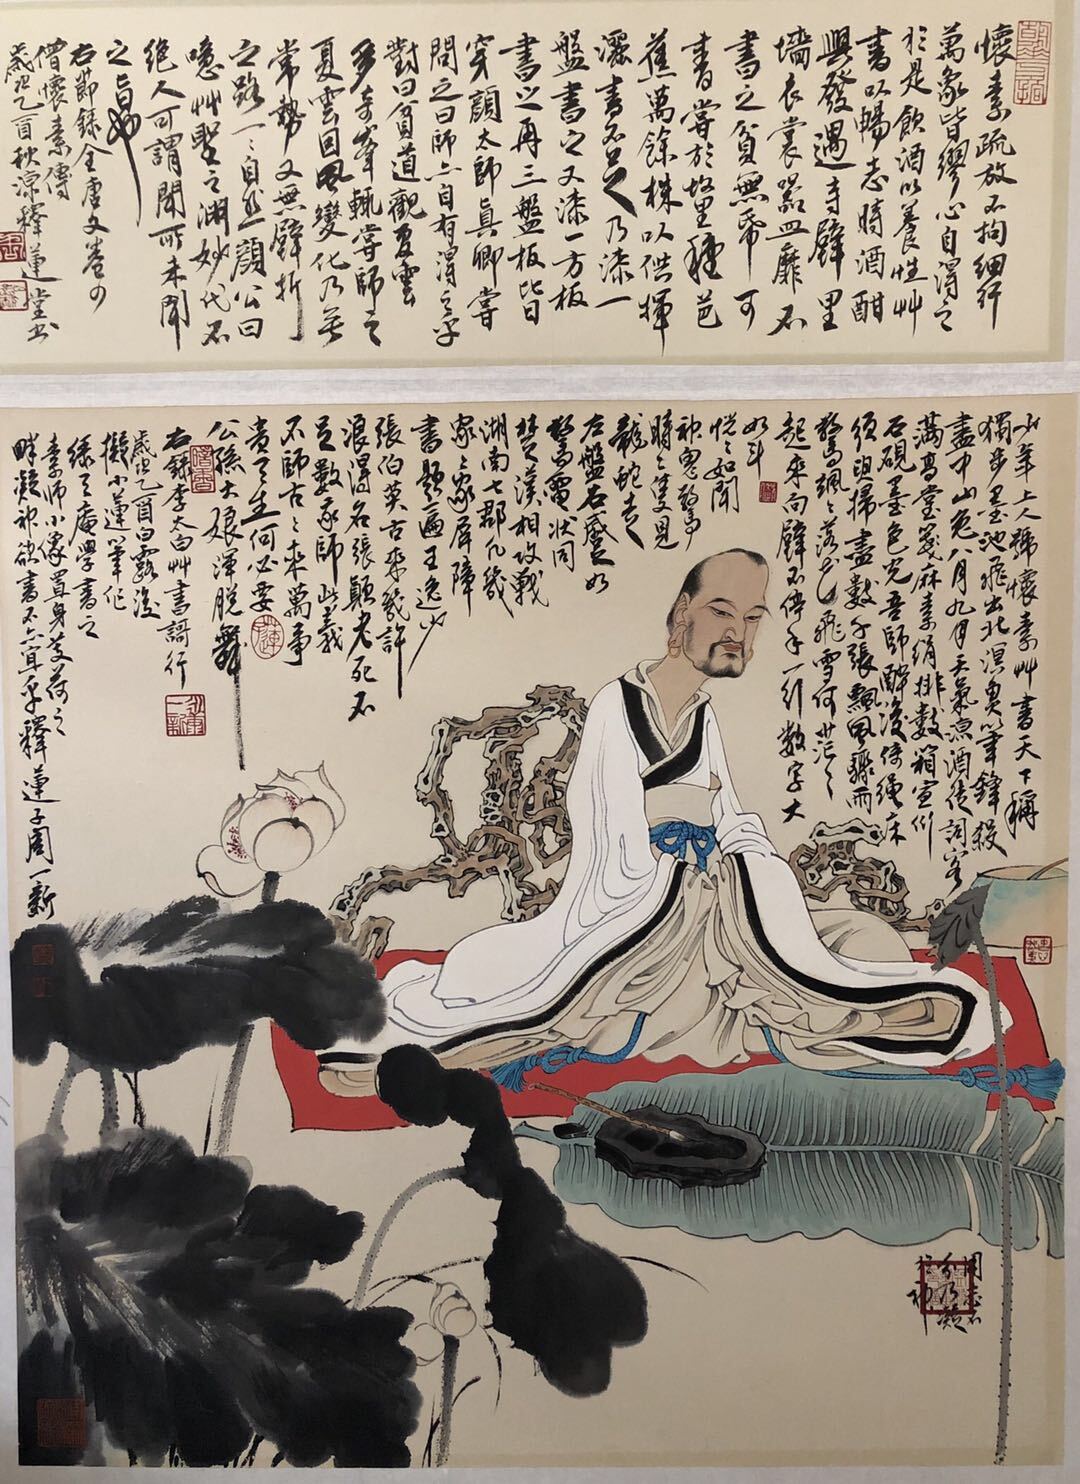 懷素疏放不拘細行
萬象皆繆心自得之
於是飲酒以養性艸
書以暢志時酒酣
興發遇寺壁里
墻衣裳器皿靡不
書之貧無帋可
書嘗於故里種芭
蕉萬餘株以供揮
灑書不足乃漆一
盤書之又漆一方板
書之再三盤板皆
穿顏太師真卿嘗
問之曰師亦自有得之乎
對曰貧道觀夏雲
多奇峯輒嘗師之
夏雲因風變化乃無
常勢又無壁折
之路一一自然顏公曰
噫艸聖之渊妙代不
絕人可謂聞所未聞
之旨也
右節錄全唐文卷
僧懷素傳
歲次乙酉秋涼釋蓮堂書
少年上人號懷素艸書天下稱
獨步墨池飛出北溟魚筆鋒殺
盡中山兔八月九月天氣涼酒徒詞客
滿高堂箋麻素絹排數箱宣州
石硯墨色光吾師醉後倚繩床
須臾掃盡數千張飄風驟雨
驚颯々落花飛雪何茫々
起來向壁不停手一行數字大
如斗
恍々如聞
神鬼驚
時々隻見
龍蛇走
左盤右蹙如
驚電狀同
楚漢相攻戰
湖南七郡凡幾
家々家屏障
書題遍王逸少
張伯英古來幾許
浪得名張顛老死不
足數我師此義
不師古々來萬事
貴天生何必要
公孫大娘渾脫舞
右錄李太白艸書謌行
歲次乙酉白露後
擬小蓮筆作
綠天庵學書之
素師小像置身芰荷之
畔凝神欲書不亦宜乎釋蓮子周一新
用志不
分乃凝
於神